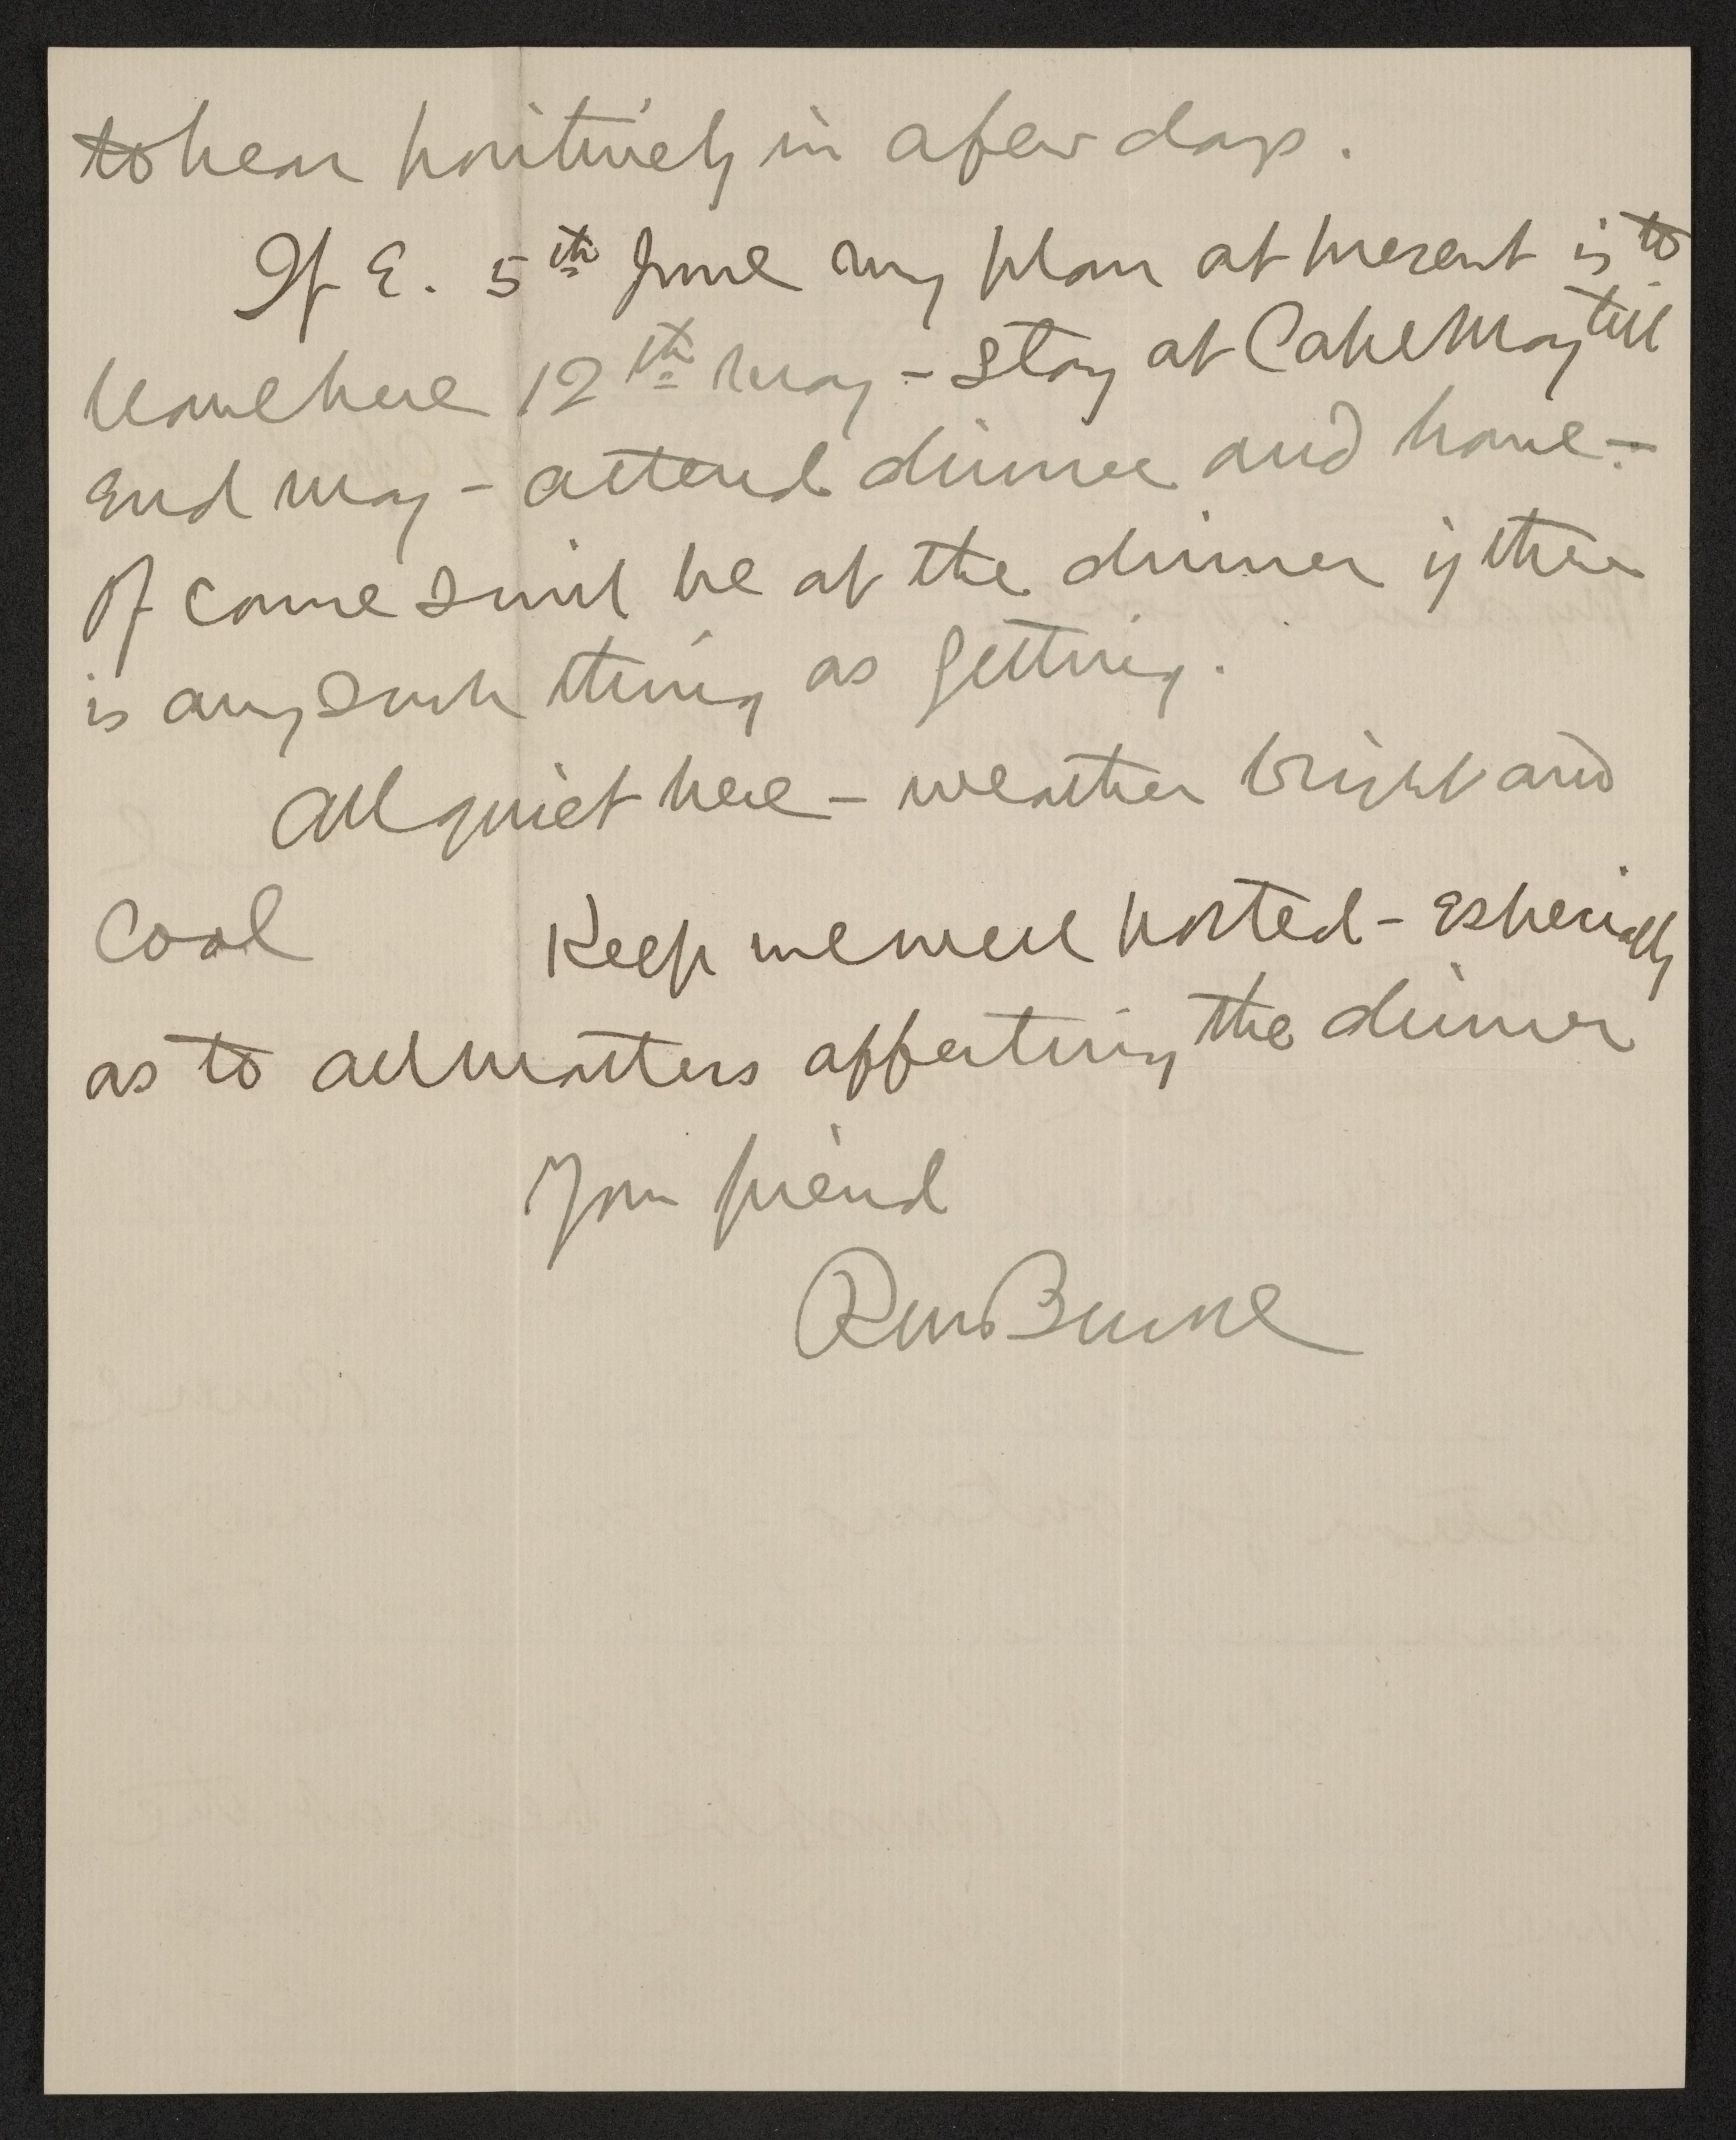 to hear positively in a few days.
If E. 5th June my plan at present is to
leave here 12th May - stay at Cape May till
end May - attend dinner and home -
Of course I will be at the dinner if there
is any such thing as getting.
All quiet here - weather bright and
cool Keep me well posted - especially
as to all matters affecting the dinner
Your friend